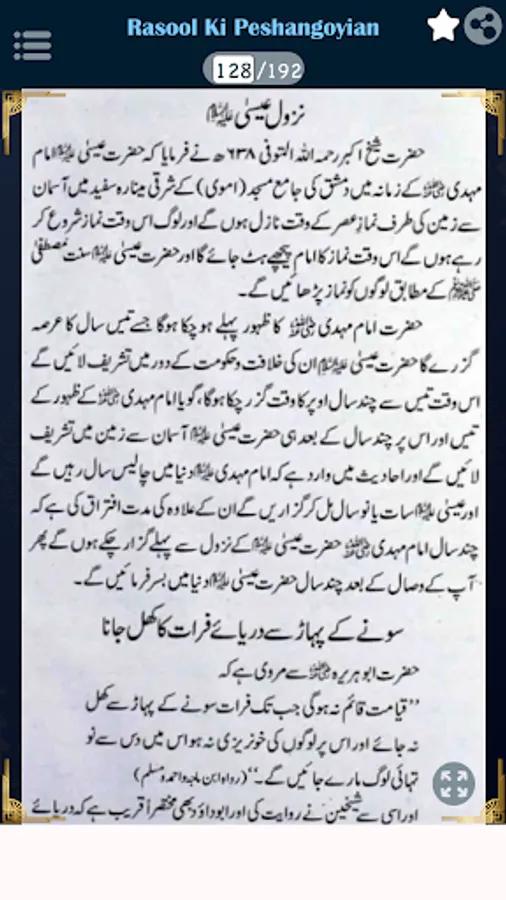 Rasool Ki Peshangoyian
128/192
نزول عیسیٰ علیہ السلام
حضرت شیخ اکبر رحمہ اللہ المتوفی ۶۳۸ھ نے فرمایا کہ حضرت عیسیٰ علیہ السلام امام
مہدی رضی اللہ عنہ کے زمانہ میں دمشق کی جامع مسجد (اموی) کے شرقی مینارہ سفید میں آسمان
سے زمین کی طرف نماز عصر کے وقت نازل ہوں گے اور لوگ اس وقت نماز شروع کر
رہے ہوں گے اس وقت نماز کا امام پیچھے ہٹ جائے گا اور حضرت عیسیٰ علیہ السلام سنت مصطفیٰ
ﷺ کے مطابق لوگوں کو نماز پڑھائیں گے۔
حضرت امام مہدی رضی اللہ عنہ کا ظہور پہلے ہو چکا ہوگا جسے تیس سال کا عرصہ
گزرے گا حضرت عیسیٰ علیہ السلام ان کی خلافت و حکومت کے دور میں تشریف لائیں گے
اس وقت تیس سے چند سال اوپر کا وقت گزر چکا ہوگا، گویا امام مہدی رضی اللہ عنہ کے ظہور کے
تیس اور اس پر چند سال کے بعد ہی حضرت عیسیٰ علیہ السلام آسمان سے زمین میں تشریف
لائیں گے اور احادیث میں وارد ہے کہ امام مہدی رضی اللہ عنہ دنیا میں چالیس سال رہیں گے
اور عیسیٰ علیہ السلام سات یا نو سال مل کر گزاریں گے ان کے علاوہ کی مدت افتراق کی ہے کہ
چند سال امام مہدی رضی اللہ عنہ حضرت عیسیٰ علیہ السلام کے نزول سے پہلے گزار چکے ہوں گے پھر
آپ کے وصال کے بعد چند سال حضرت عیسیٰ علیہ السلام دنیا میں بسر فرمائیں گے۔
سونے کے پہاڑ سے دریائے فرات کا کھل جانا
حضرت ابو ہریرہ رضی اللہ عنہ سے مروی ہے کہ
”قیامت قائم نہ ہوگی جب تک فرات سونے کے پہاڑ سے کھل
نہ جائے اور اس پر لوگوں کی خونریزی نہ ہو اس میں دس سے نو
تہائی لوگ مارے جائیں گے۔“ (رواہ ابن ماجہ و احمد و مسلم)
اور اسی سے شیخین نے روایت کی اور ابوداؤد بھی مختصراً قریب ہے کہ دریائے